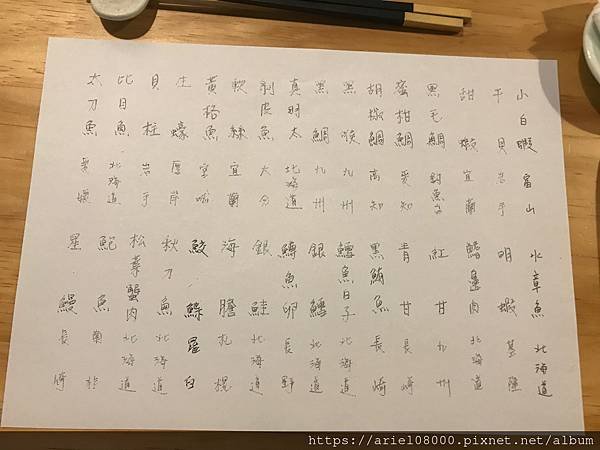 小白蝦 富山
干貝 岩手
甜蝦 宜蘭
黑毛鯛 釣魚台
蜜柑鯛 愛知
胡椒鯛 高知
黑喉 九州
黑鯛 九州
真明太 北海道
剝皮魚 大分
軟絲 宜蘭
黃格魚 宮崎
生蠔 厚岸
貝柱 岩手
比目魚 北海道
太刀魚 愛媛
水章魚 北海道
明蝦 基隆
鱈邊肉 北海道
紅甘 九州
青甘 長崎
黑鮪魚 長崎
鱈魚白子 北海道
銀鱈 北海道
鱒魚卵 長野
銀鮭 北海道
海膽 札幌
鮟鱇
秋刀魚 北海道
松葉蟹肉 北海道
鮑魚
星鰻 長崎
https://ariel08000.pixnet.net/album